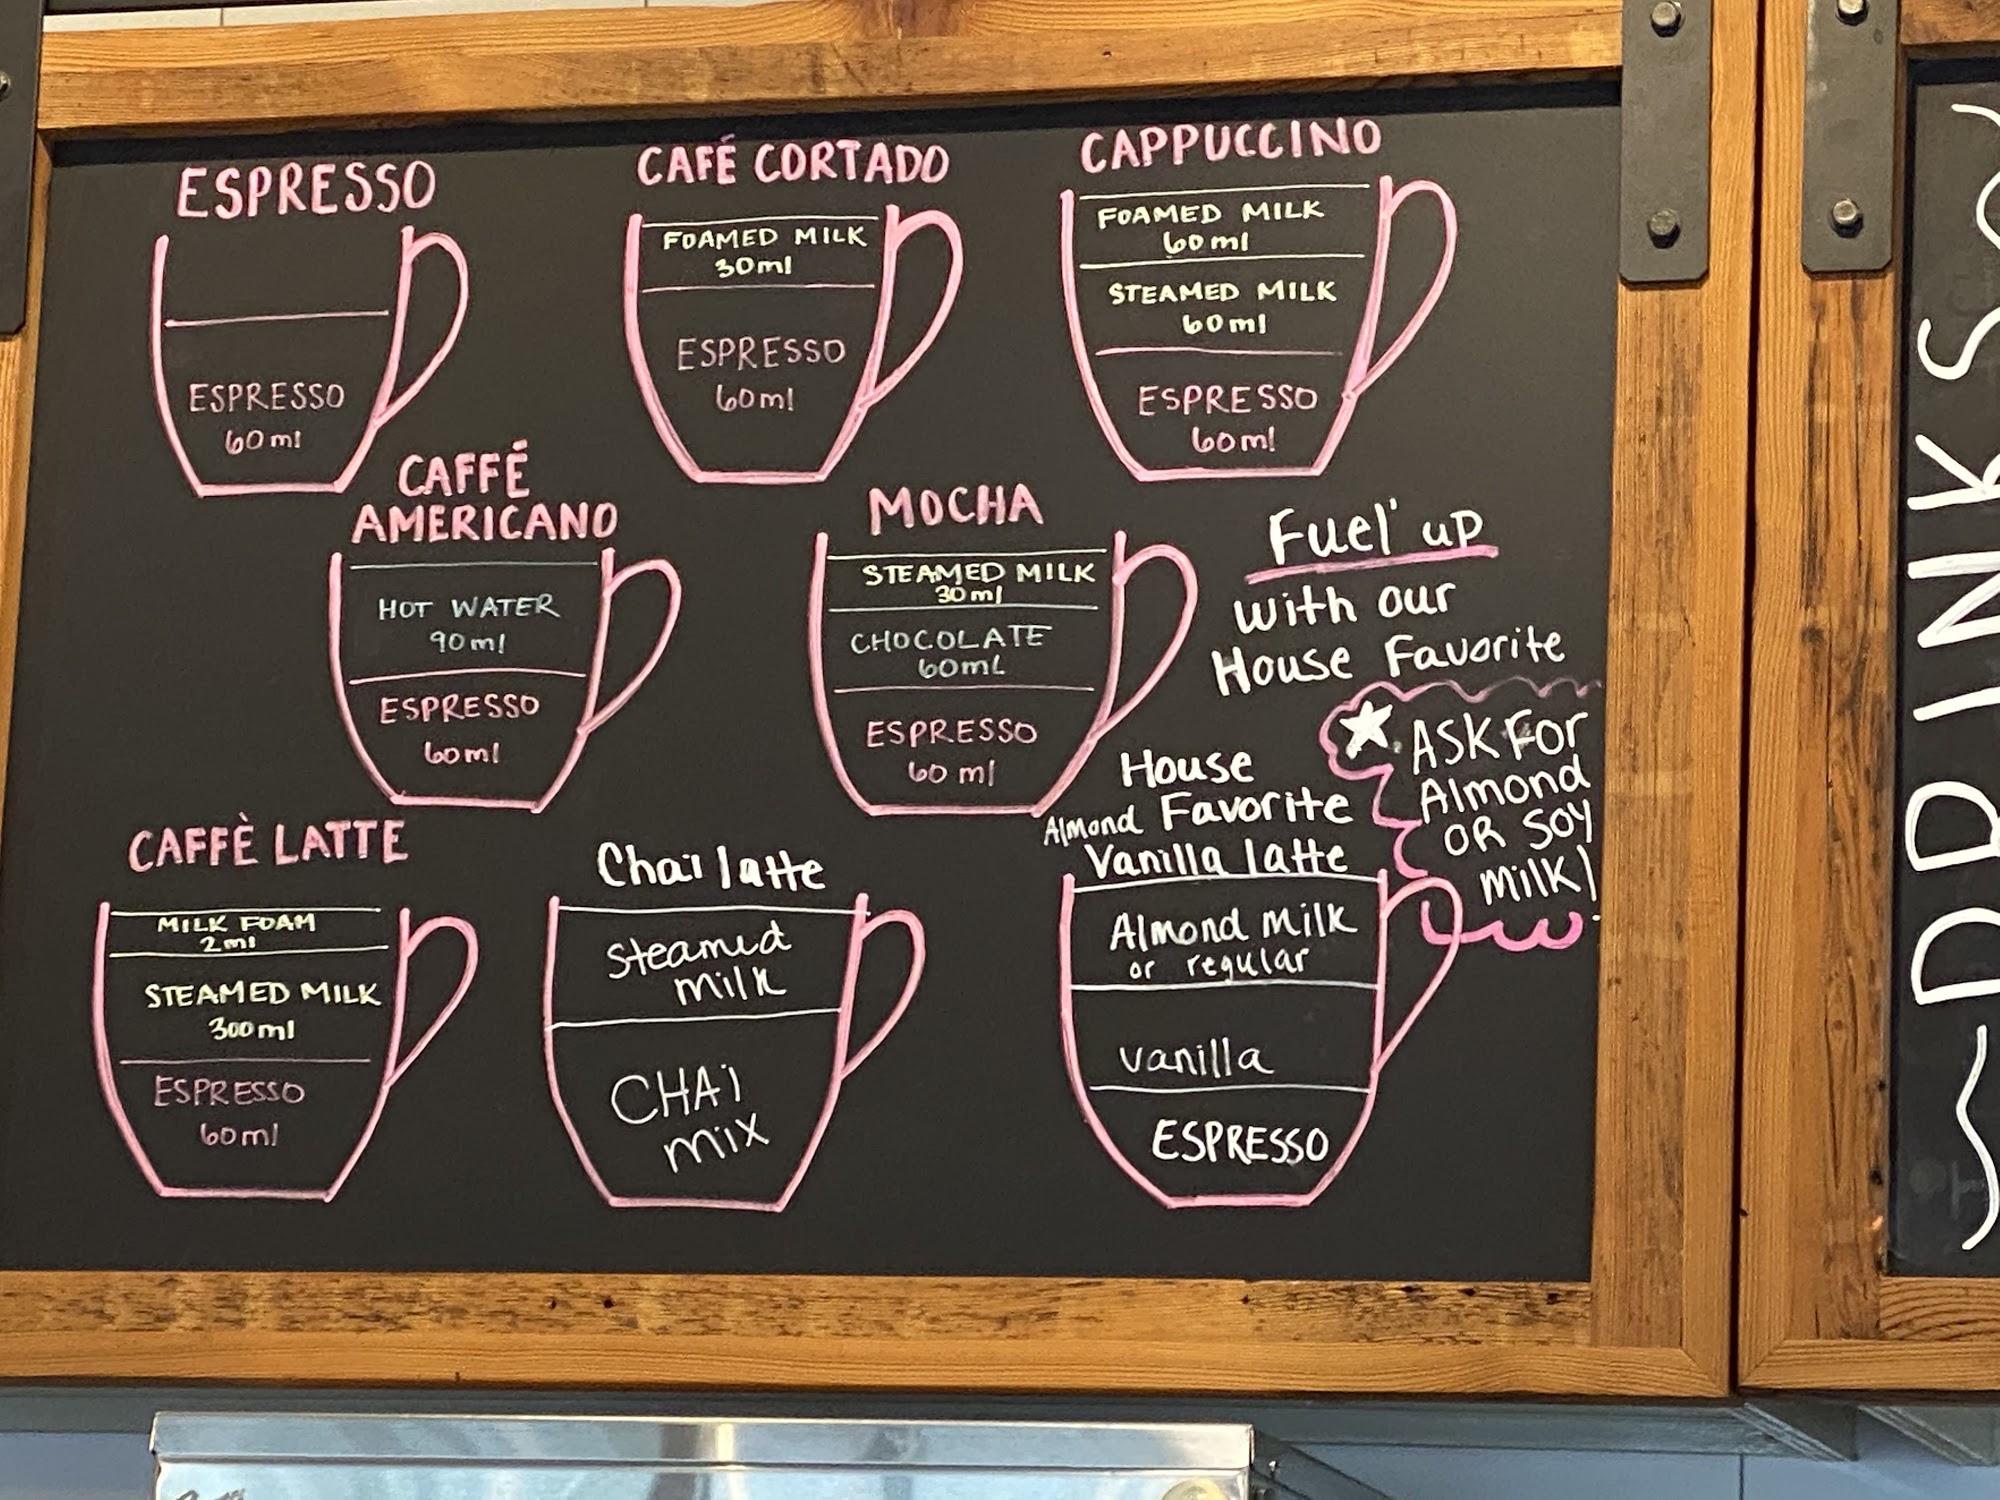 ESPRESSO
ESPRESSO
60ml
CAFÉ CORTADO
FOAMED MILK
30ml
ESPRESSO
60ml
CAPPUCCINO
FOAMED MILK
60ml
STEAMED MILK
60ml
ESPRESSO
60ml
CAFFÉ
AMERICANO
HOT WATER
90ml
ESPRESSO
60ml
MOCHA
STEAMED MILK
30ml
CHOCOLATE
60mL
ESPRESSO
60 ml
Fuel' up
with our
House Favorite
ASK FOR
Almond
OR SOY
MILK!
CAFFÈ LATTE
MILK FOAM
2ml
STEAMED MILK
300ml
ESPRESSO
60ml
Chai latte
Steamed
milk
CHAi
mix
House
Almond Favorite
Vanilla latte
Almond milk
or regular
vanilla
ESPRESSO
DRINKS